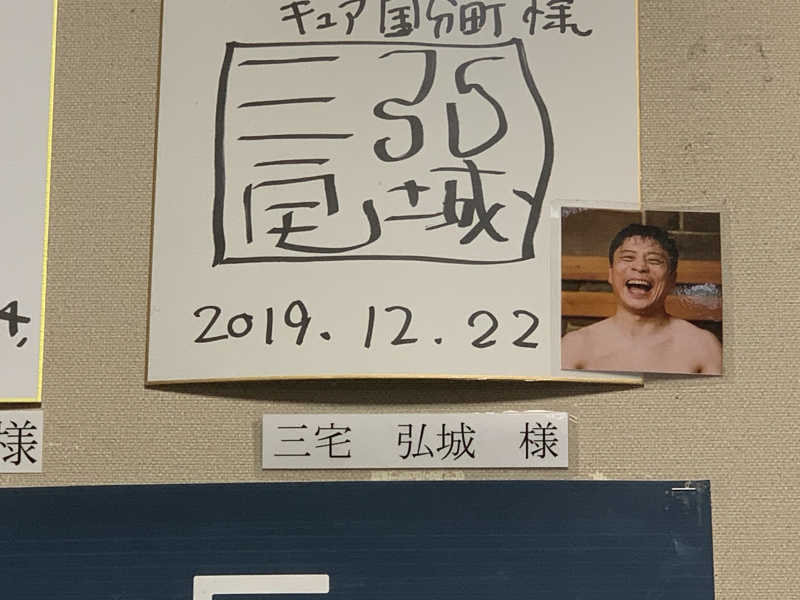 キュア国分町様
三宅
弘城
2019.12.22
三宅 弘城 様
様